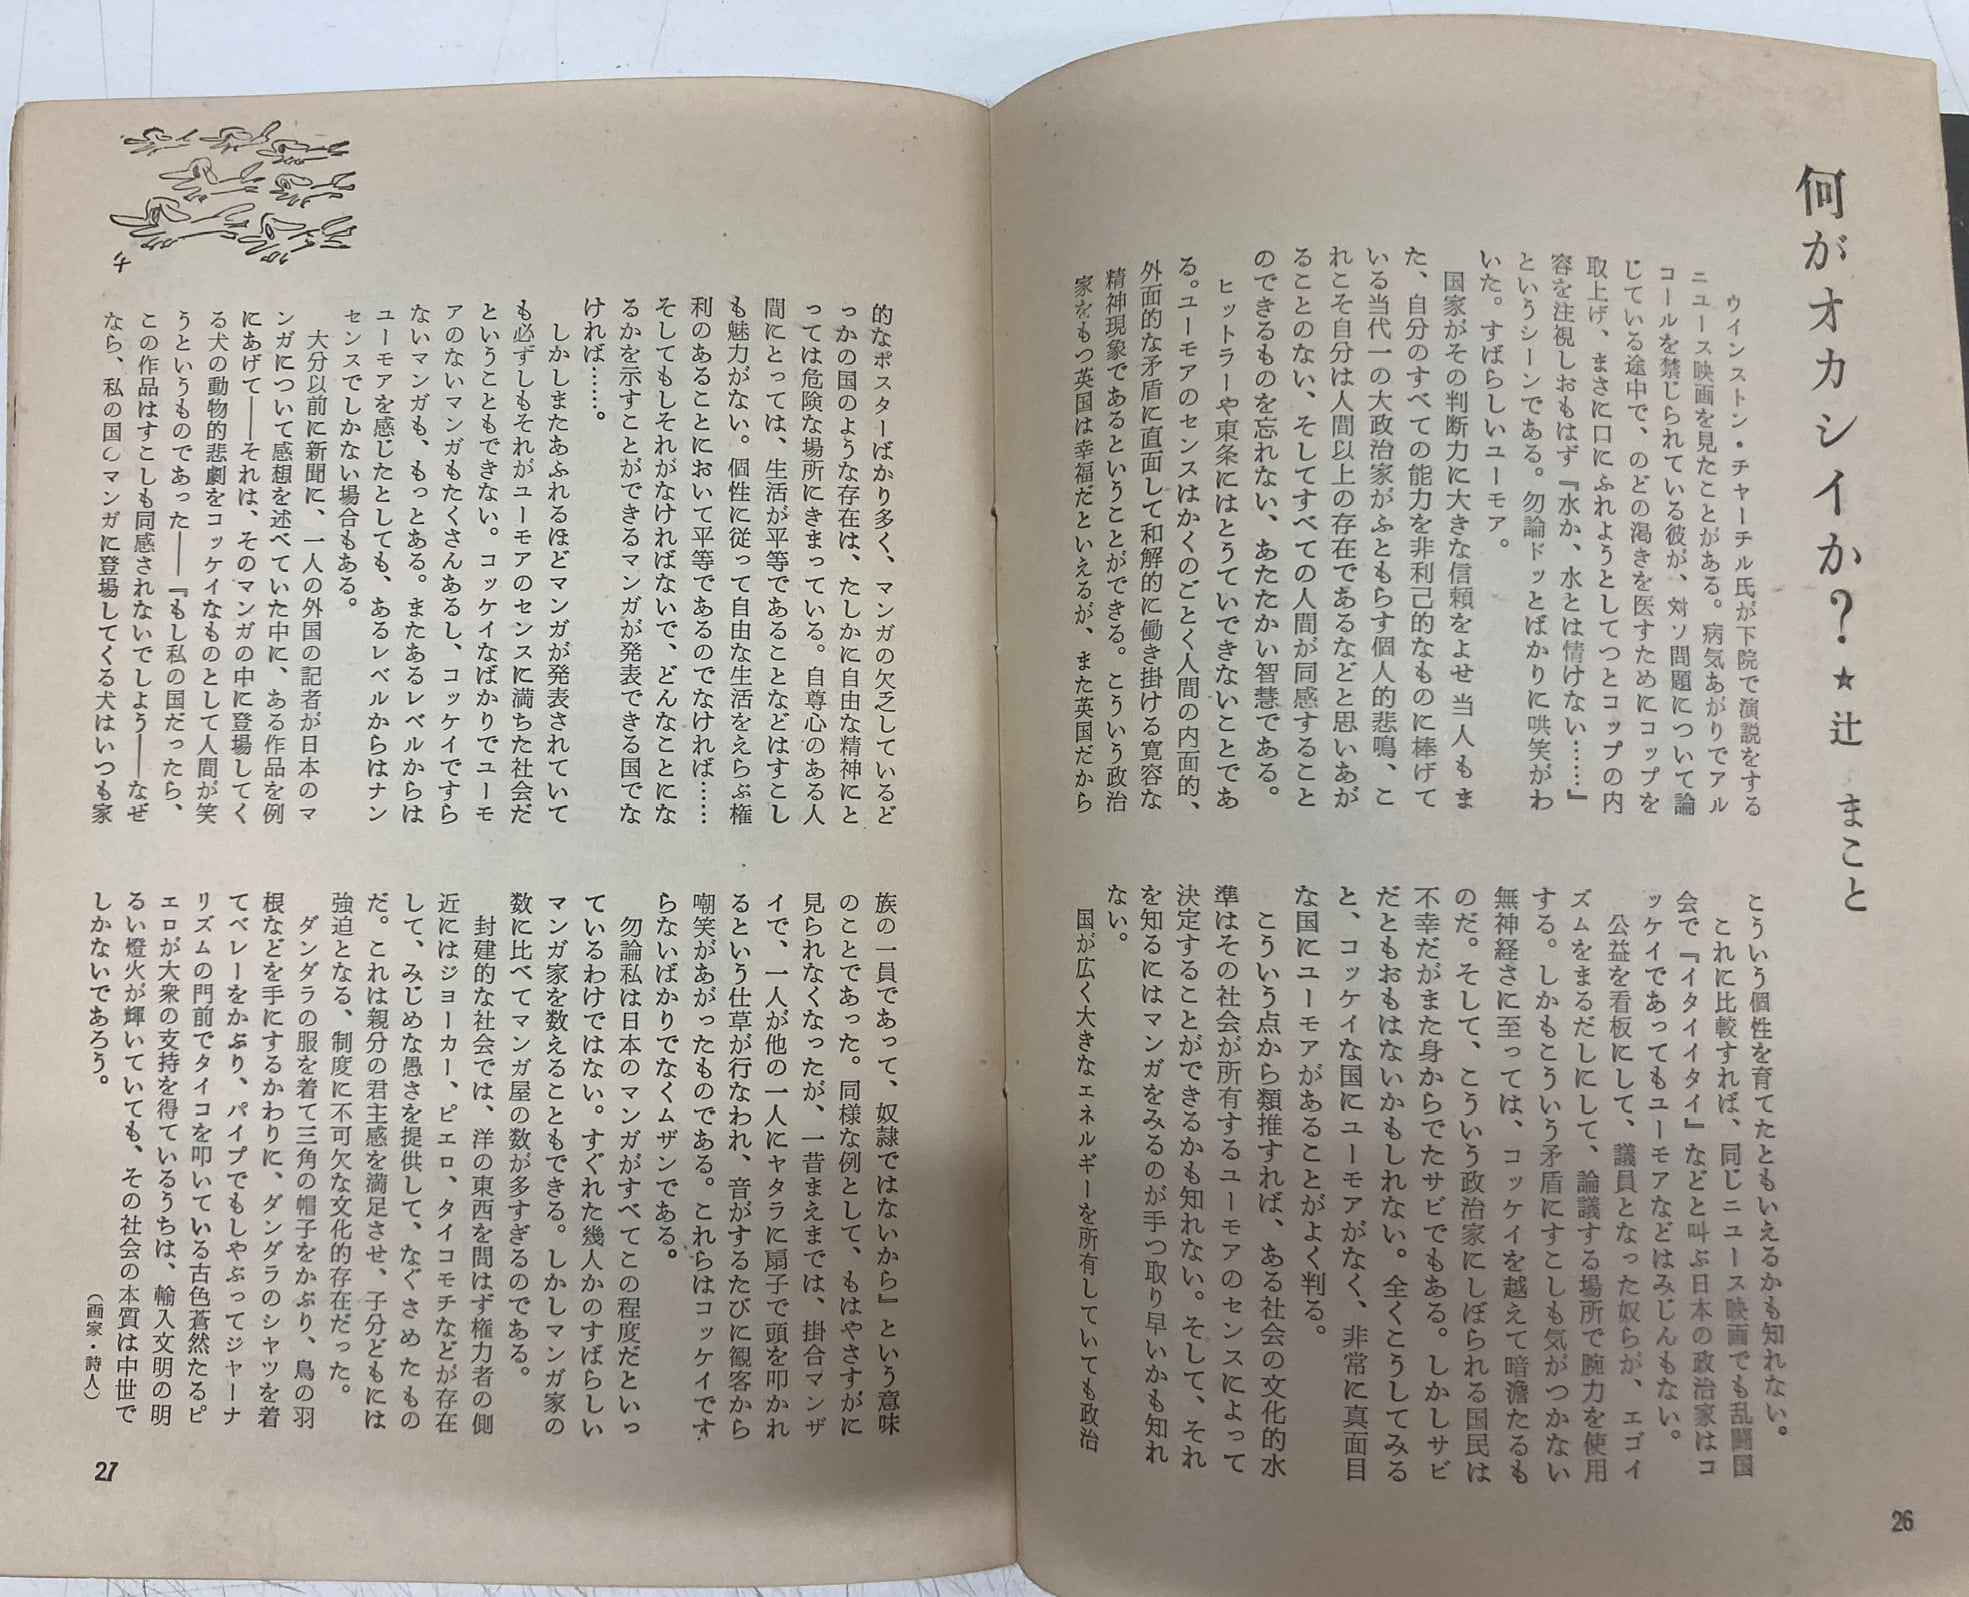 何がオカシイか？★辻　まこと
ウインストン・チャーチル氏が下院で演説をする
ニュース映画を見たことがある。病気あがりでアル
コールを禁じられている彼が、対ソ問題について論
じている途中で、のどの渇きを医すためにコップを
取上げ、まさに口にふれようとしてつとコップの内
容を注視しおもはず『水か、水とは情けない……』
というシーンである。勿論ドッとばかりに哄笑がわ
いた。すばらしいユーモア。
国家がその判断力に大きな信頼をよせ当人もま
た、自分のすべての能力を非利己的なものに棒げて
いる当代一の大政治家がふともらす個人的悲鳴、こ
れこそ自分は人間以上の存在であるなどと思いあが
ることのない、そしてすべての人間が同感すること
のできるものを忘れない、あたたかい智慧である。
ヒットラーや東条にはとうていできないことであ
る。ユーモアのセンスはかくのごとく人間の内面的、
外面的な矛盾に直面して和解的に働き掛ける寛容な
精神現象であるということができる。こういう政治
家をもつ英国は幸福だといえるが、また英国だから
こういう個性を育てたともいえるかも知れない。
これに比較すれば、同じニュース映画でも乱闘国
会で『イタイイタイ』などと叫ぶ日本の政治家はコ
ッケイであってもユーモアなどはみじんもない。
公益を看板にして、議員となった奴らが、エゴイ
ズムをまるだしにして、論議する場所で腕力を使用
する。しかもこういう矛盾にすこしも気がつかない
無神経さに至っては、コッケイを越えて暗澹たるも
のだ。そして、こういう政治家にしばられる国民は
不幸だがまた身からでたサビでもある。しかしサビ
だともおもはないかもしれない。全くこうしてみる
と、コッケイな国にユーモアがなく、非常に真面目
な国にユーモアがあることがよく判る。
こういう点から類推すれば、ある社会の文化的水
準はその社会が所有するユーモアのセンスによって
決定することができるかも知れない。そして、それ
を知るにはマンガをみるのが手っ取り早いかも知れ
ない。
国が広く大きなエネルギーを所有していても政治
26
的なポスターばかり多く、マンガの欠乏しているど
っかの国のような存在は、たしかに自由な精神にと
っては危険な場所にきまっている。自尊心のある人
間にとっては、生活が平等であることなどはすこし
も魅力がない。個性に従って自由な生活をえらぶ権
利のあることにおいて平等であるのでなければ……
そしてもしそれがなければないで、どんなことにな
るかを示すことができるマンガが発表できる国でな
ければ……。
しかしまたあふれるほどマンガが発表されていて
も必ずしもそれがユーモアのセンスに満ちた社会だ
ということもできない。コッケイなばかりでユーモ
アのないマンガもたくさんあるし、コッケイですら
ないマンガも、もっとある。またあるレベルからは
ユーモアを感じたとしても、あるレベルからはナン
センスでしかない場合もある。
大分以前に新聞に、一人の外国の記者が日本のマ
ンガについて感想を述べていた中に、ある作品を例
にあげて――それは、そのマンガの中に登場してく
る犬の動物的悲劇をコッケイなものとして人間が笑
うというものであった――『もし私の国だったら、
この作品はすこしも同感されないでしよう――なぜ
なら、私の国のマンガに登場してくる犬はいつも家
族の一員であって、奴隷ではないから』という意味
のことであった。同様な例として、もはやさすがに
見られなくなったが、一昔まえまでは、掛合マンザ
イで、一人が他の一人にヤタラに扇子で頭を叩かれ
るという仕草が行なわれ、音がするたびに観客から
嘲笑があがったものである。これらはコッケイです
らないばかりでなくムザンである。
勿論私は日本のマンガがすべてこの程度だといっ
ているわけではない。すぐれた幾人かのすばらしい
マンガ家を数えることもできる。しかしマンガ家の
数に比べてマンガ屋の数が多すぎるのである。
封建的な社会では、洋の東西を問はず権力者の側
近にはジョーカー、ピエロ、タイコモチなどが存在
して、みじめな愚さを提供して、なぐさめたもの
だ。これは親分の君主感を満足させ、子分どもには
強迫となる、制度に不可欠な文化的存在だった。
ダンダラの服を着て三角の帽子をかぶり、鳥の羽
根などを手にするかわりに、ダンダラのシャツを着
てベレーをかぶり、パイプでもしやぶってジャーナ
リズムの門前でタイコを叩いている古色蒼然たるピ
エロが大衆の支持を得ているうちは、輸入文明の明
るい燈火が輝いていても、その社会の本質は中世で
しかないであろう。
（画家・詩人）
27